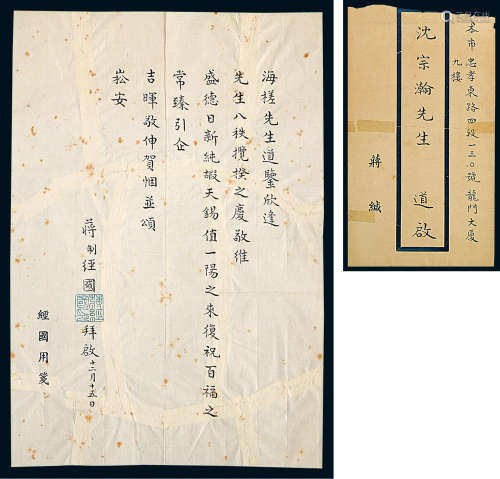 海槎先生道鑒欣逢
先生八秩攬揆之慶敬維
盛德日新純嘏天錫值一陽之來復祝百福之
常臻引企
吉暉敬伸賀悃並頌
崧安
蔣制經國拜啟十二月十五日
經國用箋
本市忠孝東路四段一三〇號龍門大廈
九樓
沈宗瀚先生 道啟
蔣緘